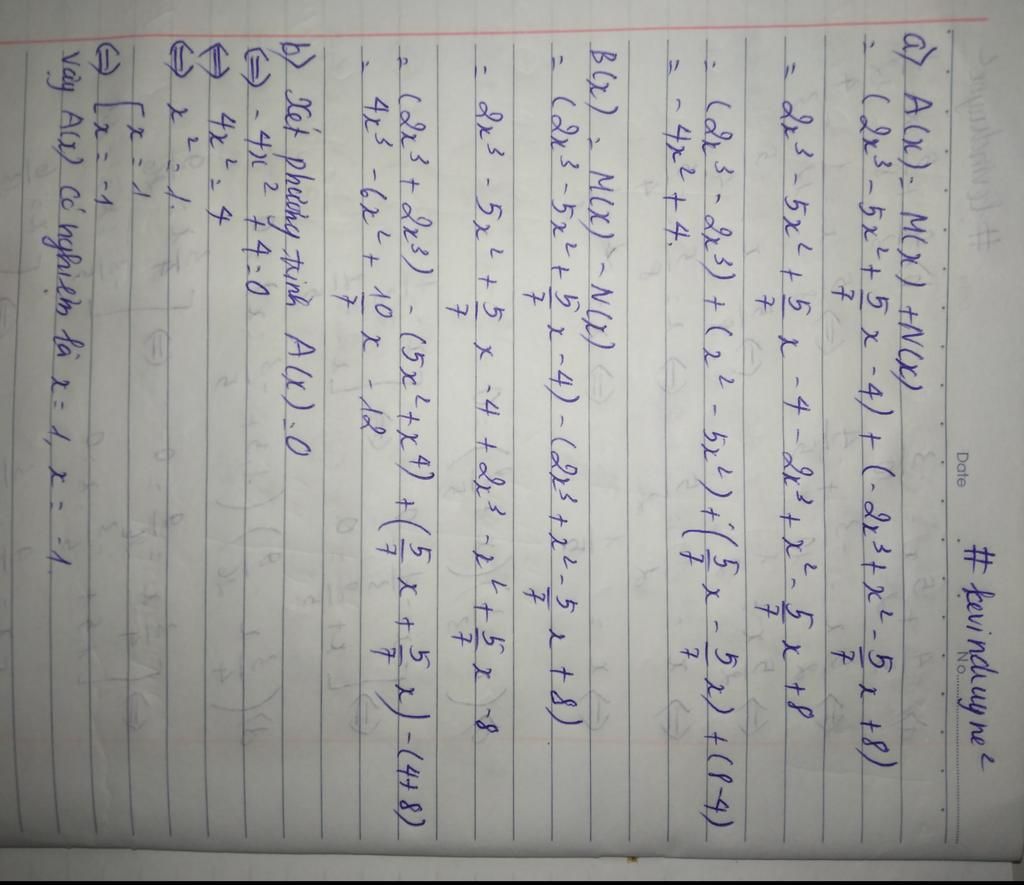 # kevinduyne²
Date
No
a) A(x) = M(x) + N(x)
= (2x³ - 5x² + 5/7 x - 4) + (-2x³ + x² - 5/7 x + 8)
= 2x³ - 5x² + 5/7 x - 4 - 2x³ + x² - 5/7 x + 8
= (2x³ - 2x³) + (x² - 5x²) + (5/7 x - 5/7 x) + (8-4)
= - 4x² + 4.
B(x) = M(x) - N(x)
= (2x³ - 5x² + 5/7 x - 4) - (2x³ + x² - 5/7 x + 8)
= 2x³ - 5x² + 5/7 x - 4 + 2x³ - x² + 5/7 x - 8
= (2x³ + 2x³) - (5x² + x⁴) + (5/7 x + 5/7 x) - (4+8)
= 4x³ - 6x² + 10/7 x - 12
b) Xét phương trình A(x) = 0
⇔ - 4x² + 4 = 0
⇔ 4x² = 4
⇔ x² = 1.
⇔ [ x = 1
x = -1
Vậy A(x) có nghiệm là x = 1, x = -1.